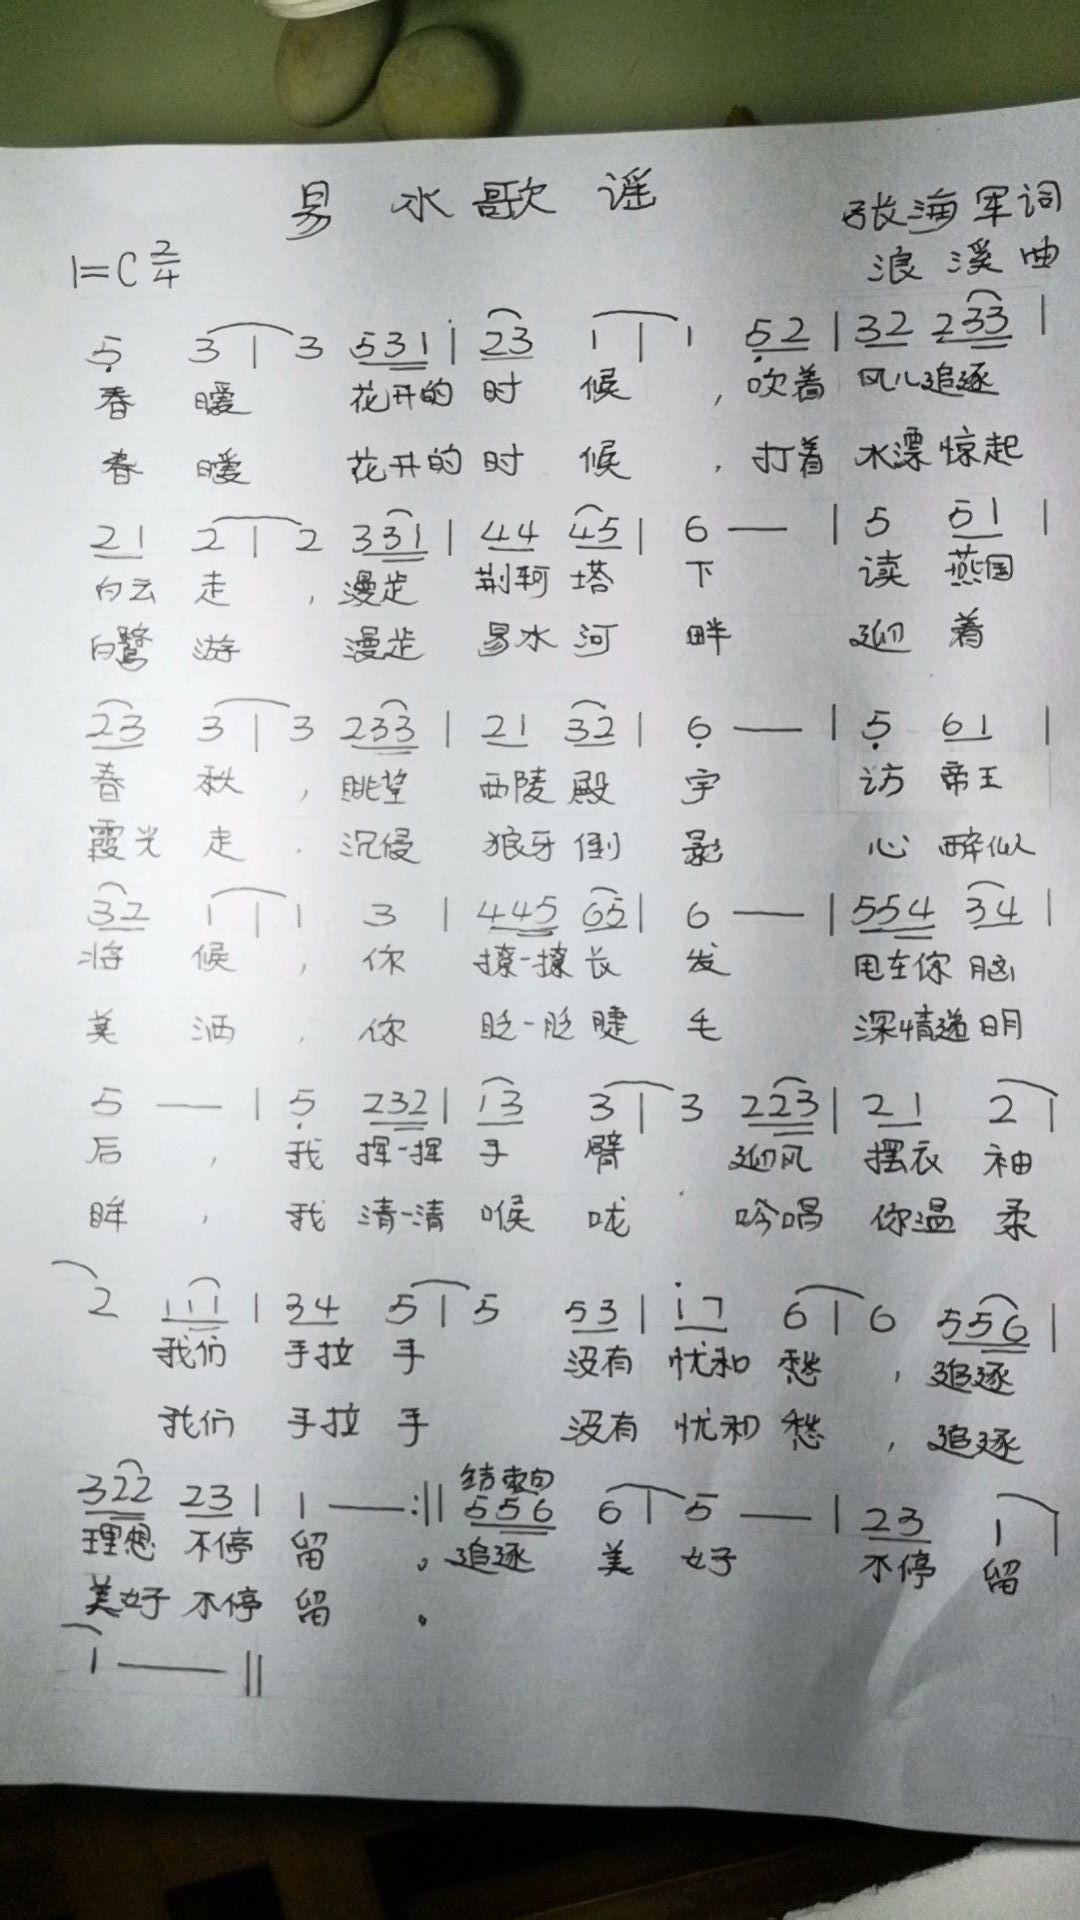 易水歌谣
张海军词
1=C 2/4
浪溪曲
5 3 | 3 531 | 23 1 | 1 52 | 32 233 |
春 暖 花开的 时 候 , 吹着 风儿追逐
春 暖 花开的 时 候 , 打着 水漂惊起
21 2 | 2 331 | 44 45 | 6 — | 5 51 |
白云 走 , 漫步 荆轲 塔 下 读 燕国
白鹭 游 漫步 易水 河 畔 迎 着
23 3 | 3 233 | 21 32 | 6 — | 5 61 |
春 秋 , 眺望 西陵 殿 宇 访 帝王
霞光 走 . 沉侵 狼牙 倒 影 心 醉似
32 1 | 1 3 | 445 65 | 6 — | 554 34 |
将 候 , 你 撩一撩 长 发 甩在你 脑
美 洒 , 你 眨一眨 睫 毛 深情递 明
5 — | 5 232 | 13 3 | 3 223 | 21 2 |
后 , 我 挥一挥 手 臂 迎风 摆衣 袖
眸 , 我 清一清 喉 咙 . 吟唱 你温 柔
2 111 | 34 5 | 5 53 | i7 6 | 6 556 |
我们 手拉 手 没有 忧和 愁 , 追逐
我们 手拉 手 没有 忧和 愁 , 追逐
结束句
322 23 | 1 — :|| 556 6 | 5 — | 23 1 |
理想 不停 留 。 追逐 美 好 不停 留
美好 不停 留 。
1 — ||